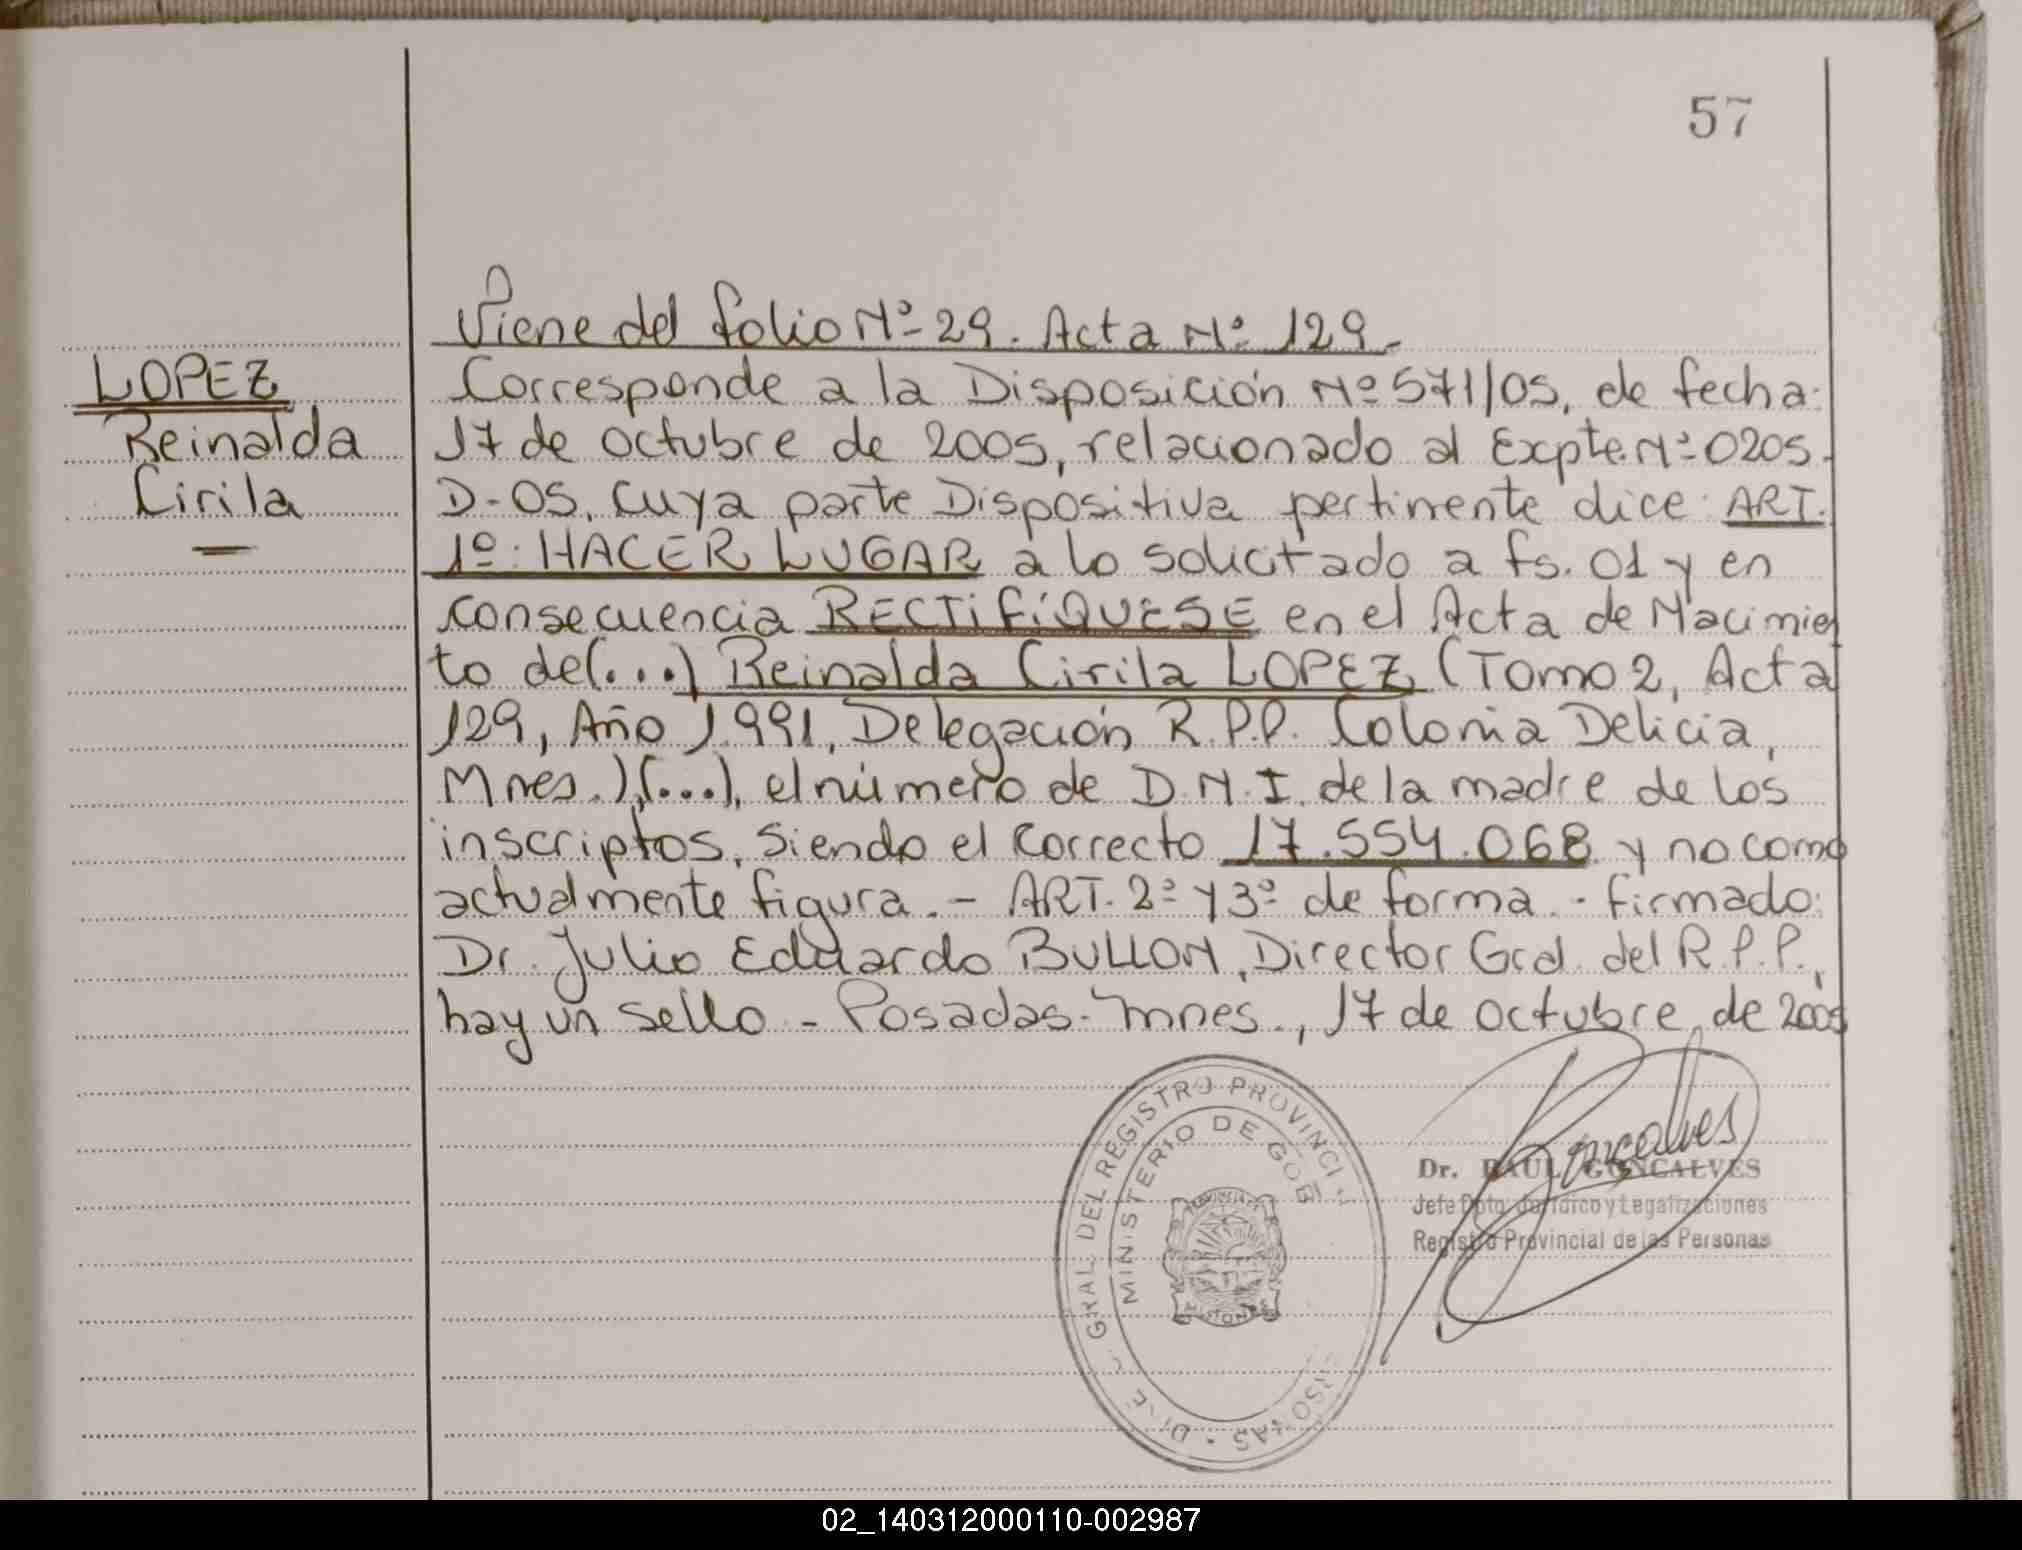 57
Viene del folio Nº 29. Acta Nº 129.-
LOPEZ
Reinalda
Cirila
Corresponde a la Disposición Nº 571/05, de fecha:
17 de octubre de 2005, relacionado al Expte. Nº 0205.
D-05, cuya parte Dispositiva pertinente dice: ART.
1º: HACER LUGAR a lo solicitado a fs. 01 y en
consecuencia RECTIFÍQUESE en el Acta de Nacimien
to de (...) Reinalda Cirila LOPEZ (Tomo 2, Acta
129, Año 1.991, Delegación R.P.P. Colonia Delicia,
Mnes.), (...), el número de D.N.I. de la madre de los
inscriptos, siendo el correcto 17.554.068 y no como
actualmente figura.- ART. 2º y 3º de forma.- firmado:
Dr. Julio Eduardo BULLON, Director Gral. del R.P.P.,
hay un sello - Posadas - Mnes., 17 de octubre de 2005
GRAL. DEL REGISTRO PROVINCI
MINISTERIO DE GOB
PROVINCIA
MISIONES
Gonçalves
Dr. RAUL GONCALVES
Jefe Dpto. Jurídico y Legalizaciones
Registro Provincial de las Personas
02_140312000110-002987